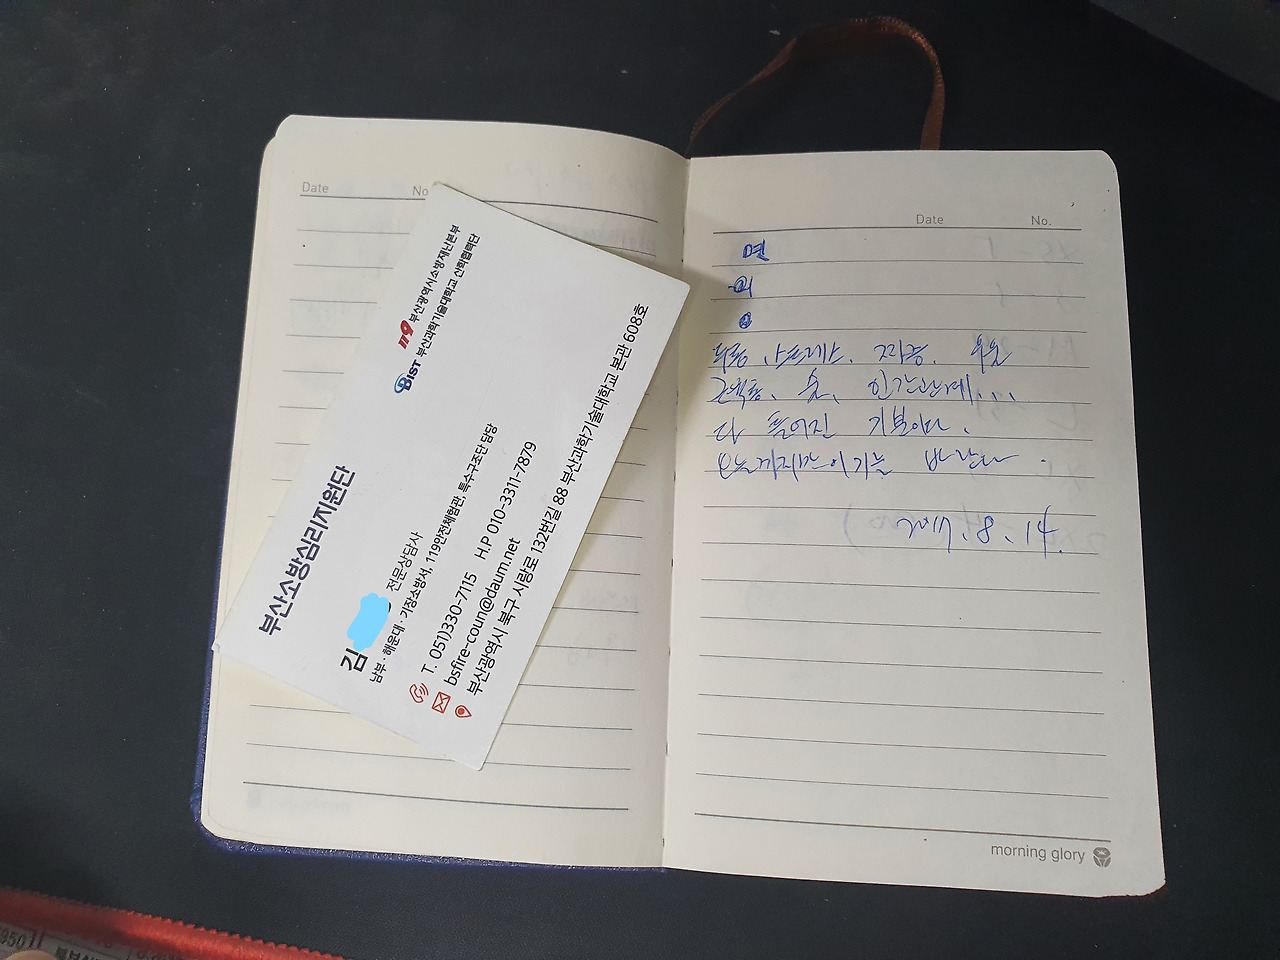 Date No
119 부산광역시소방재난본부
BIST 부산과학기술대학교 산학협력단
부산소방심리지원단
김 전문상담사
남부·해운대·기장소방서, 119안전체험관, 특수구조단 담당
T. 051)330-7115 H.P 010-3311-7879
bsfire-coun@daum.net
부산광역시 북구 시랑로 132번길 88 부산과학기술대학교 본관 608호
Date No.
면
외
두통, 스트레스, 조차증, 우울
근육통, 술, 인간관계...
다 틀어진 기분이다.
오늘까지만이기를 바란다.
2017. 8. 14.
morning glory